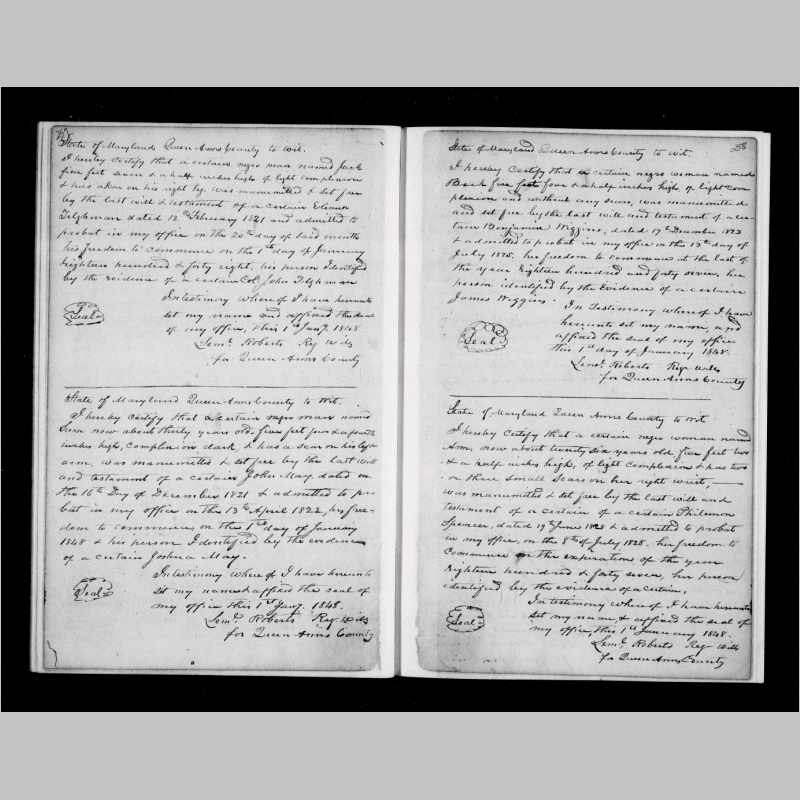 State of Maryland Queen Anns County to wit.
I hereby certify that a certain negro man named Jack
five feet seven & a half inches high of light complexion
& has a scar on his right leg was manumitted & set free
by the last will & testament of a certain Eleanor
Tilghman dated 12th February 1821 and admitted to
probat in my office on the 20th day of said month
his freedom to commence on the 1st day of January
Eighteen hundred & forty eight, his person Identified
by the evidence of a certain Col John Tilghman
In testimony where of I have hereunto
set my name and affixed the seal
of my office, this 1st Jany. 1848
Seal
Seml. Roberts Reg Wills
for Queen Anns County
State of Maryland Queen Anns County to Wit.
I hereby certify that a certain negro man named
now about thirty years old, five feet four & a fourth
inches high, complexion dark & has a scar on his left
arm, was manumitted & set free by the last will
and testament of a certain John May, dated on
the 16th Day of December 1821 & admitted to pro-
bat in my office on the 13th April 1822, his free-
dom to commence on the 1st day of January
1848 & his person Identified by the evidence
of a certain Joshua May.
In testimony where of I have hereunto
set my name & affixed the seal of
my office this 1st Jany. 1848.
Seal
Seml. Roberts Reg Wills
for Queen Anns County
State of Maryland Queen Anns County to Wit.
I hereby Certify that a certain negro woman named
five feet four & a half inches high of light com
plexion and without any scars, was manumitted
and set free by the last will and testament of a cer-
tain Benjamin Wiggins, dated 17th December 1823
& admitted to probat in my office on the 13th day of
July 1825, her freedom to commence at the last of
the year Eighteen hundred and forty seven, her
person identified by the Evidence of a certain
James Wiggins.
In Testimony where of I have
hereunto set my name, and
affixed the seal of my office
this 1st day of January 1848.
Seal
Seml. Roberts Regr Wills
for Queen Anns County
State of Maryland Queen Anns County to Wit
I hereby certify that a certain negro woman named
Ann, now about twenty six years old five feet two
& a half inches high, of light complexion & has two
or three small Scars on her right wrist,
was manumitted & set free by the last will and
testament of a certain of a certain Philemon
Spencer, dated 19th June 1828 & admitted to probat
in my office, on the 8th of July 1828. her freedom to
Commence on the expiration of the year
Eighteen hundred & forty seven, her person
identified by the evidence of a certain,
In testimony where of I have hereunto
set my name, & affixed the seal of
my office, this 1st January 1848.
Seal
Seml. Roberts Reg Wills
for Queen Anns County